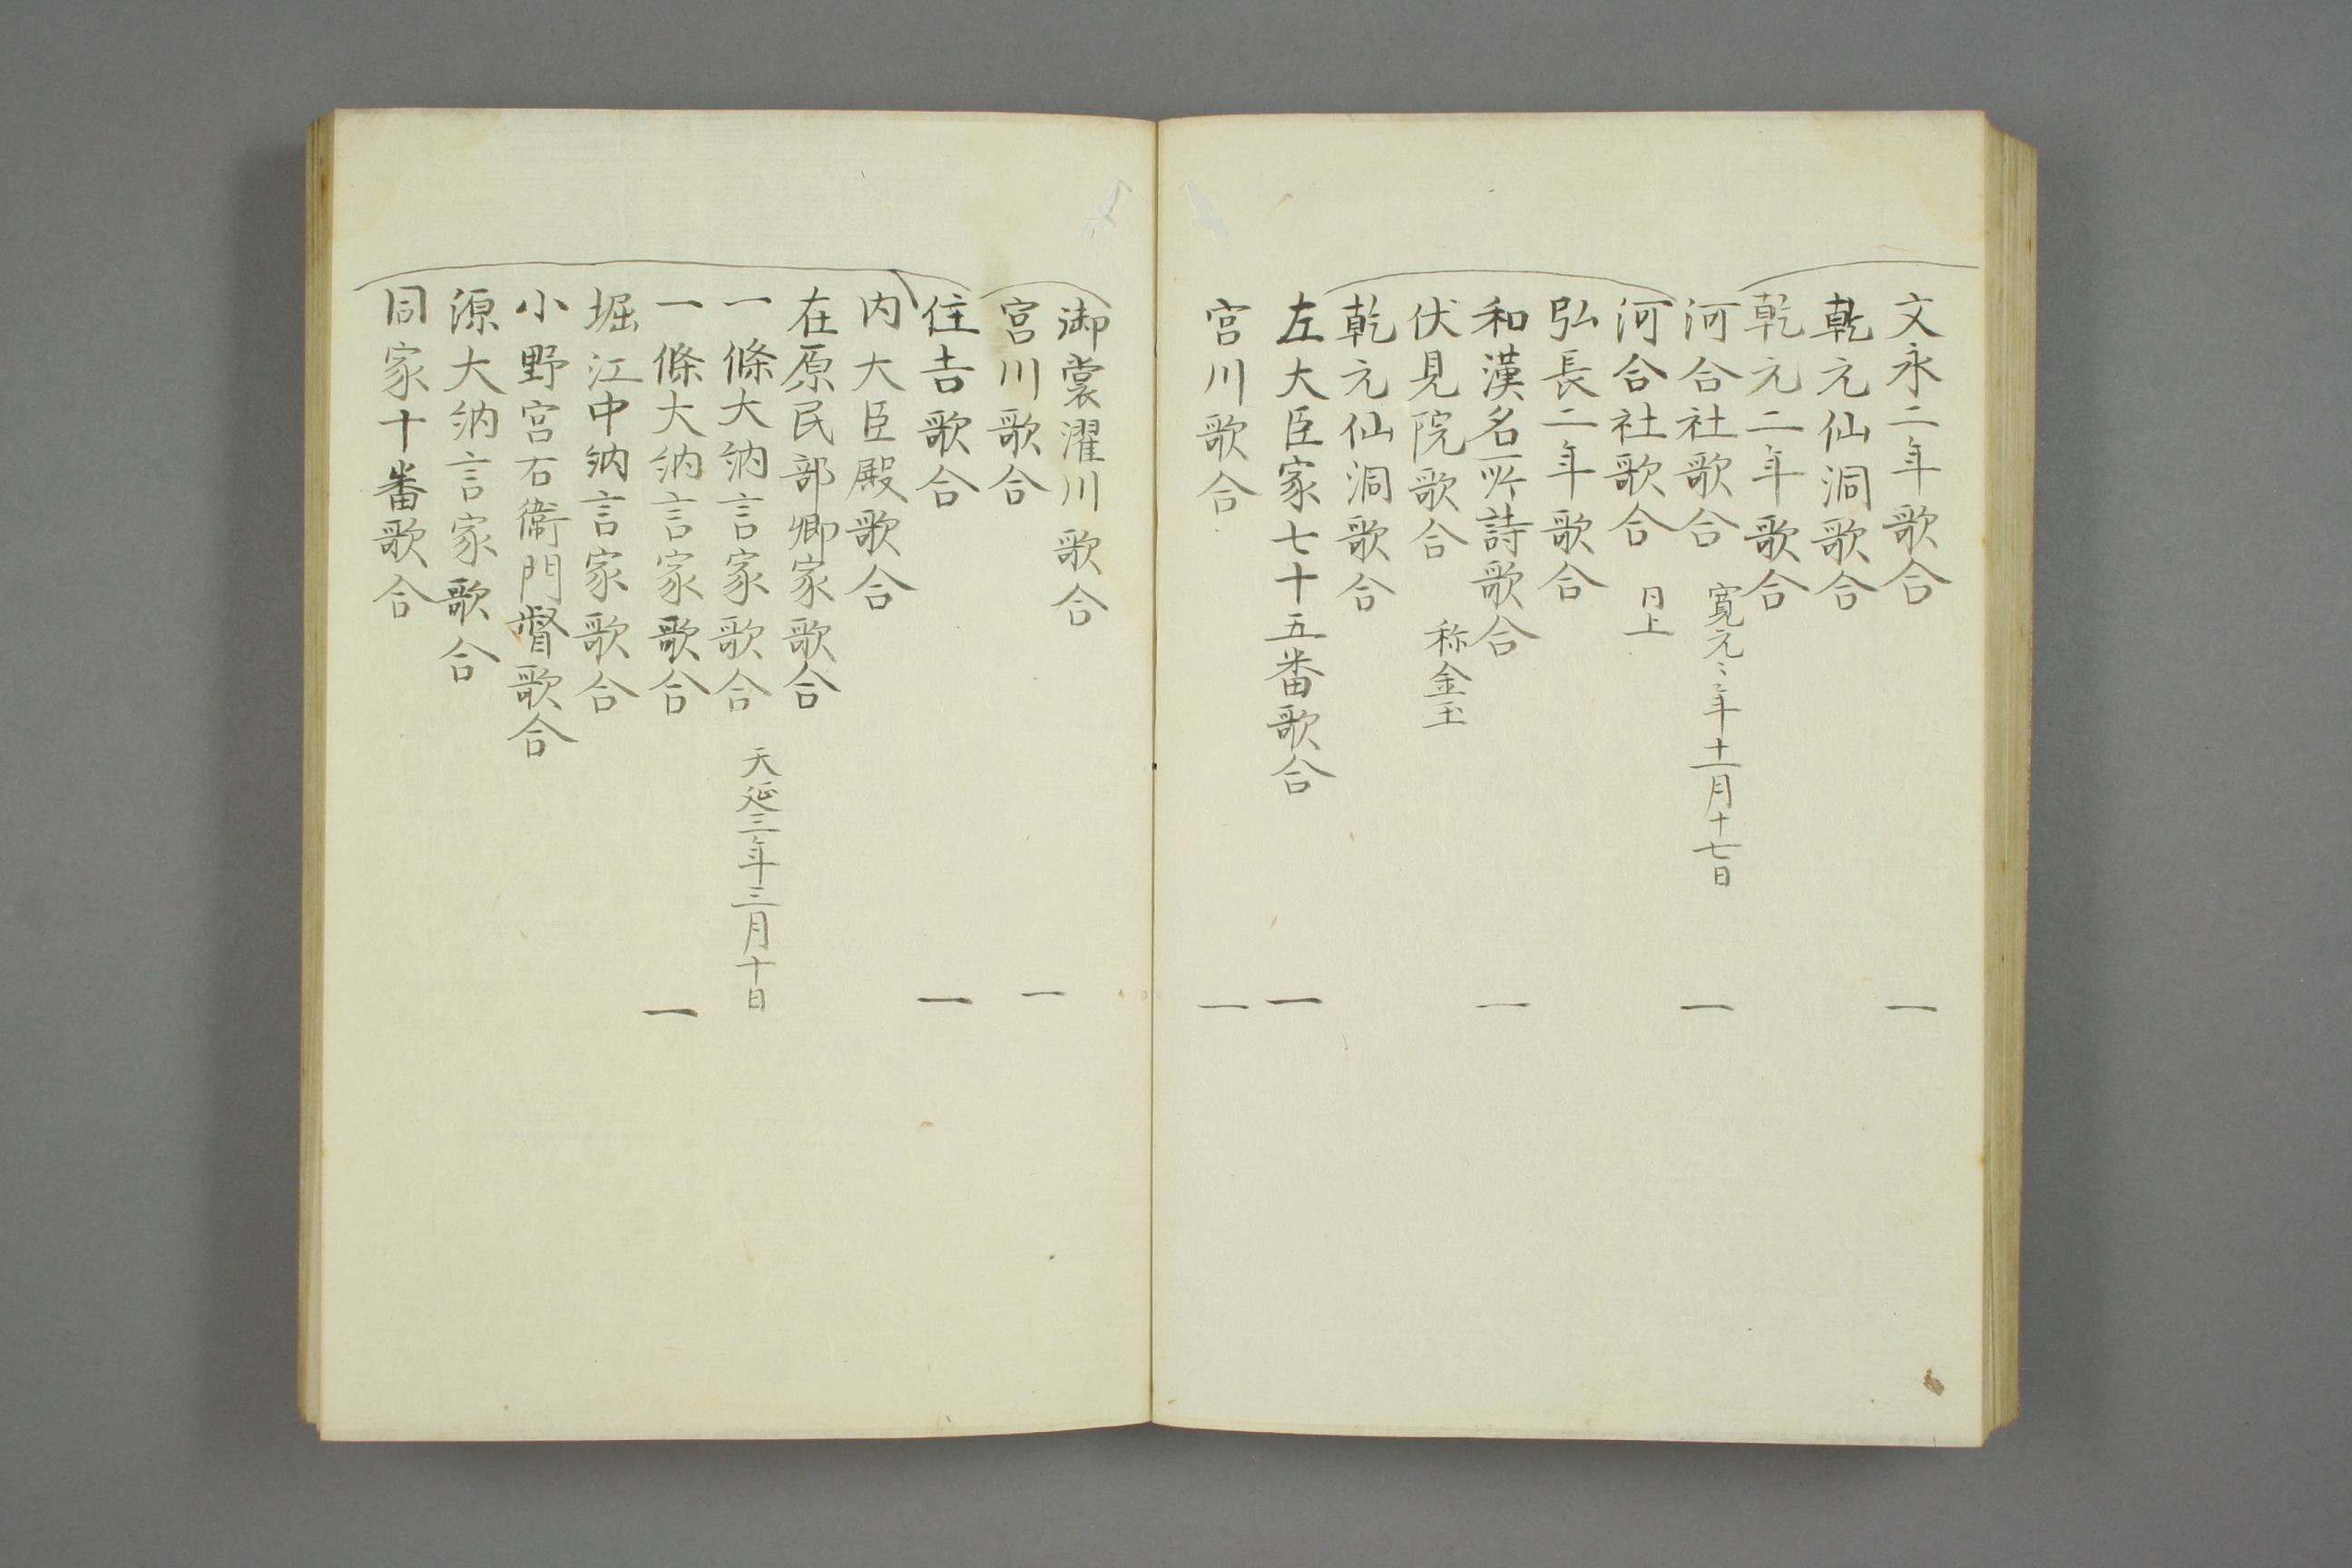 文永二年歌合　一
乾元仙洞歌合
乾元二年歌合
河合社歌合　寛元〻年十一月十七日　一
河合社歌合　同上
弘長二年歌合
和漢名所詩歌合　一
伏見院歌合　称金玉
乾元仙洞歌合
左大臣家七十五番歌合　一
宮川歌合　一
御裳濯川歌合
宮川歌合　一
住吉歌合　一
内大臣殿歌合
在原民部卿家歌合
一條大納言家歌合　天延三年三月十日
一條大納言家歌合　一
堀江中納言家歌合
小野宮右衞門督歌合
源大納言家歌合
同家十番歌合